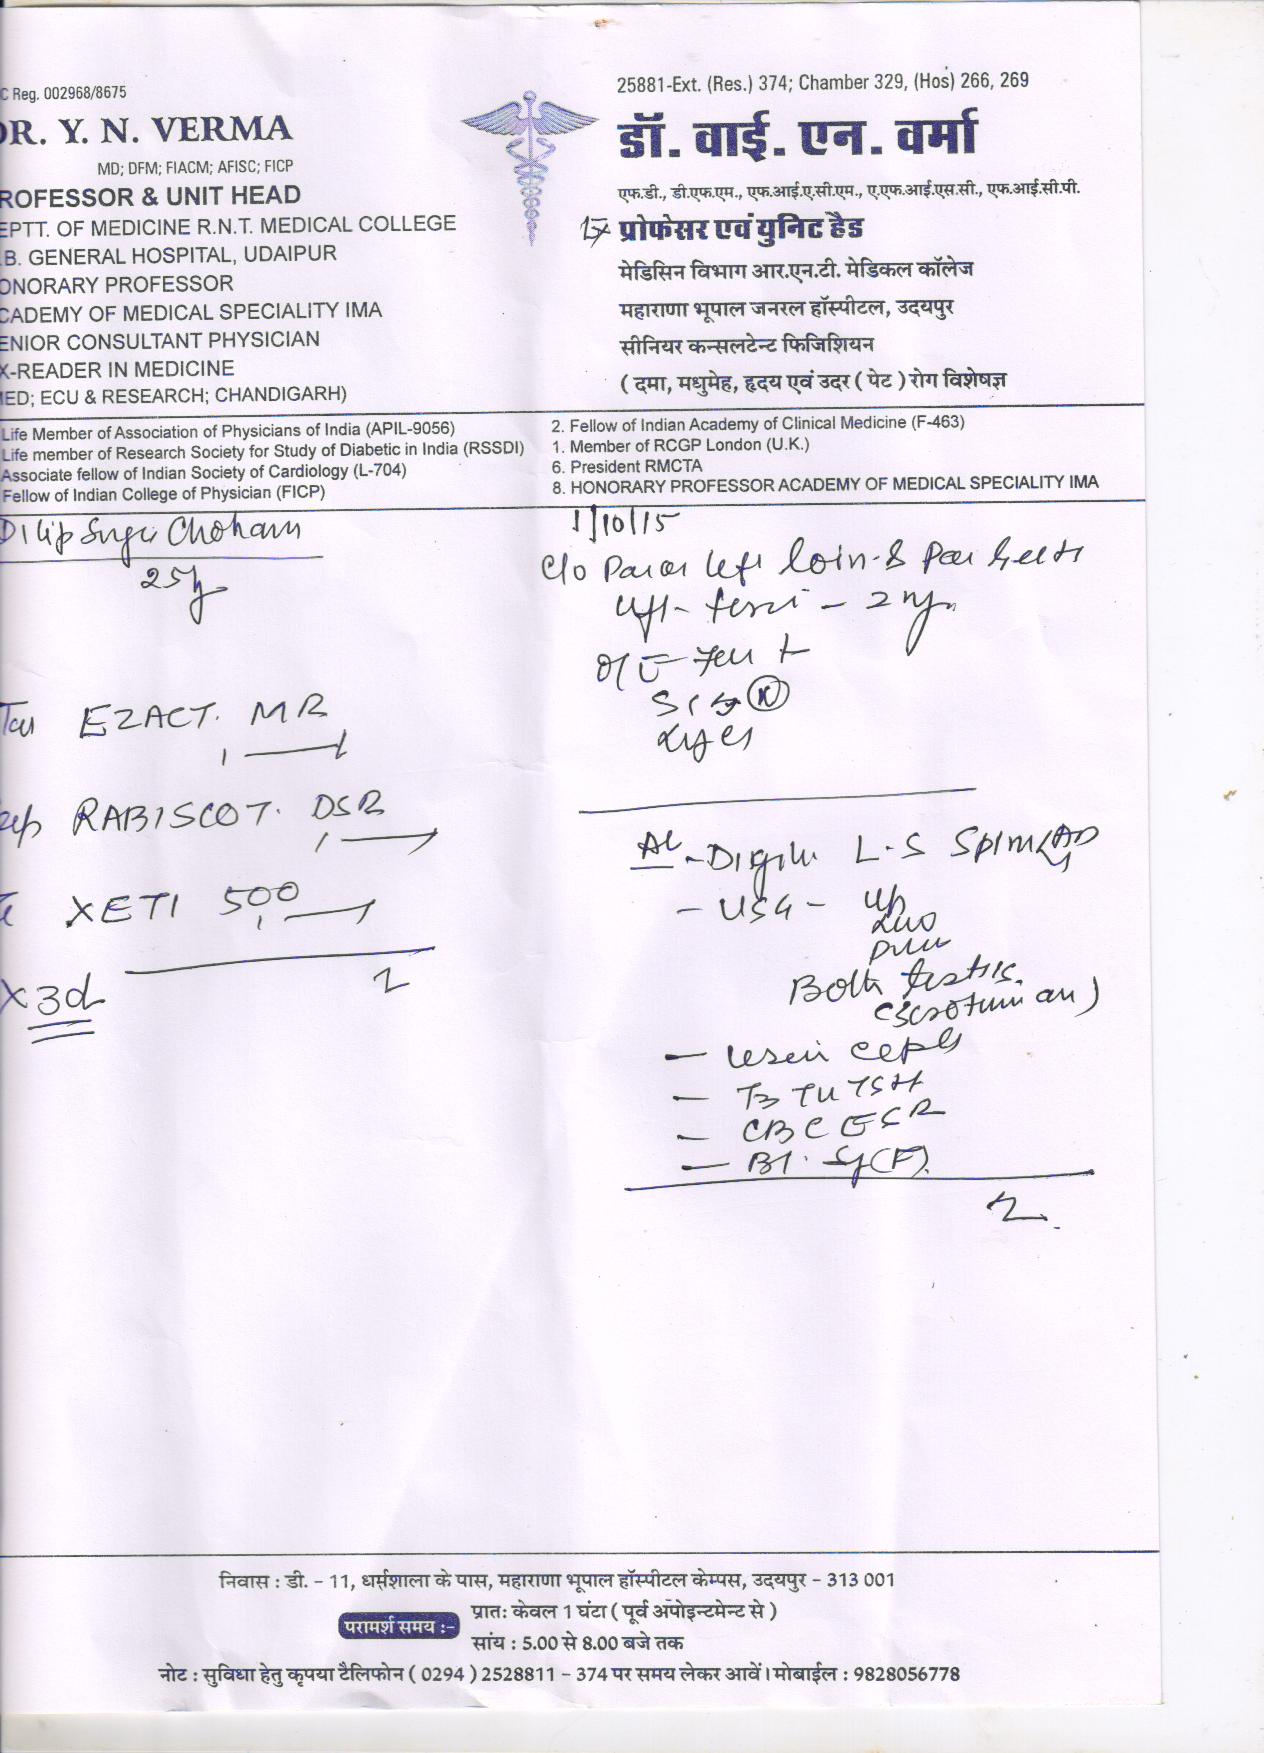 C Reg. 002968/8675
DR. Y. N. VERMA
MD; DFM; FIACM; AFISC; FICP
ROFESSOR & UNIT HEAD
EPTT. OF MEDICINE R.N.T. MEDICAL COLLEGE
.B. GENERAL HOSPITAL, UDAIPUR
ONORARY PROFESSOR
CADEMY OF MEDICAL SPECIALITY IMA
ENIOR CONSULTANT PHYSICIAN
X-READER IN MEDICINE
MED; ECU & RESEARCH; CHANDIGARH)
25881-Ext. (Res.) 374; Chamber 329, (Hos) 266, 269
डॉ. वाई. एन. वर्मा
एफ.डी., डी.एफ.एम., एफ.आई.ए.सी.एम., ए.एफ.आई.एस.सी., एफ.आई.सी.पी.
प्रोफेसर एवं युनिट हैड
मेडिसिन विभाग आर.एन.टी. मेडिकल कॉलेज
महाराणा भूपाल जनरल हॉस्पीटल, उदयपुर
सीनियर कन्सलटेन्ट फिजिशियन
( दमा, मधुमेह, हृदय एवं उदर ( पेट ) रोग विशेषज्ञ
Life Member of Association of Physicians of India (APIL-9056)
Life member of Research Society for Study of Diabetic in India (RSSDI)
Associate fellow of Indian Society of Cardiology (L-704)
Fellow of Indian College of Physician (FICP)
2. Fellow of Indian Academy of Clinical Medicine (F-463)
1. Member of RCGP London (U.K.)
6. President RMCTA
8. HONORARY PROFESSOR ACADEMY OF MEDICAL SPECIALITY IMA
Dilip Choham
25y
EZACT. MR
RABISCOT. DSR
XETI 500
X 3d
1/10/15
c/o left loin
S1 S2 N
L-S Spine
- USG -
Both testis
(scrotum)
- T3 T4 TSH
- CBC ESR
- Bl. Sg (F).
निवास : डी. - 11, धर्मशाला के पास, महाराणा भूपाल हॉस्पीटल केम्पस, उदयपुर - 313 001
परामर्श समय :-
प्रातः केवल 1 घंटा ( पूर्व अपोइन्टमेन्ट से )
सांय : 5.00 से 8.00 बजे तक
नोट : सुविधा हेतु कृपया टैलिफोन ( 0294 ) 2528811 - 374 पर समय लेकर आवें। मोबाईल : 9828056778